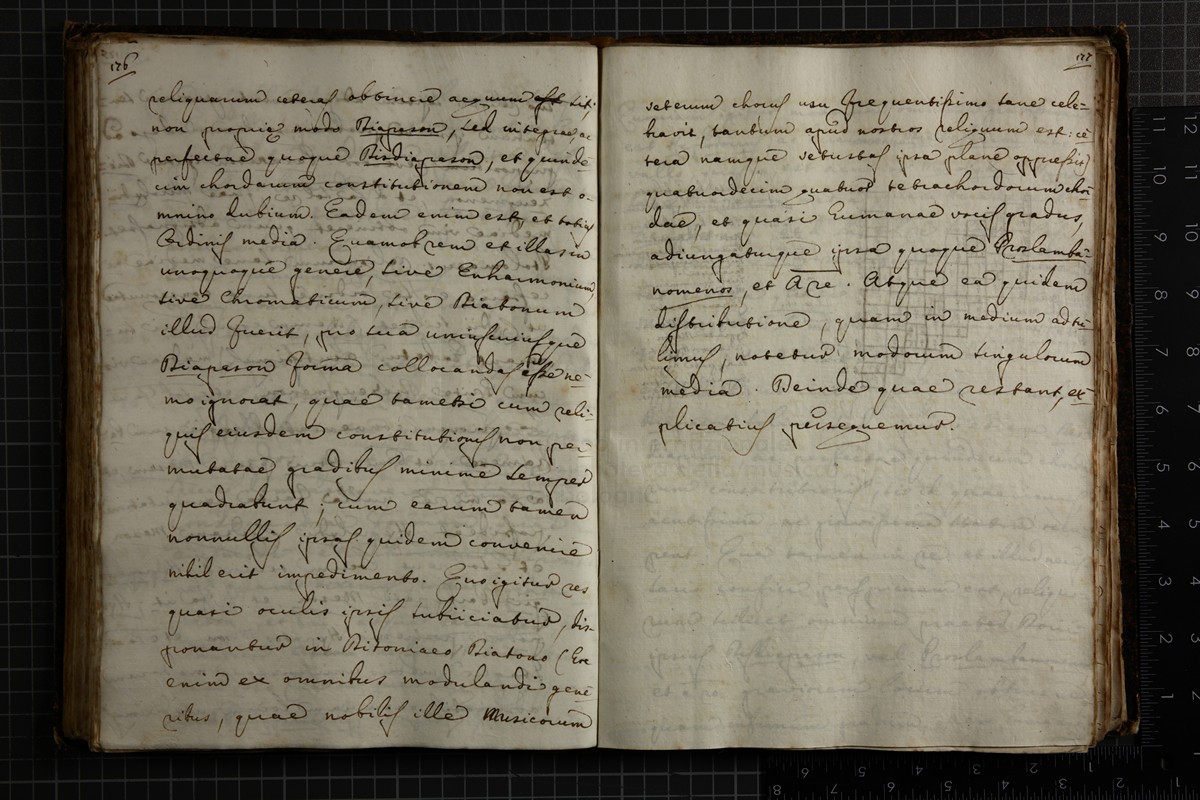 176
reliquarum ceteras obtinere aequum est sit;
non proprie modo Diapason, sed integrae, ac
perfectae quoque Bisdiapason, et quinde-
cim chordarum constitutionem non est o-
mnino dubium. Eadem enim est, et totius
Ordinis media. Quamobrem et illas in
unoquoque genere, sive Enharmonium,
sive Chromaticum, sive Diatonum
illud fuerit, pro sua uniuscuiusque
Diapason forma collocandas esse ne-
mo ignorat, quae tametsi cum reli-
quis eiusdem constitutionis non per-
mutatae gradibus minime semper
quadrabunt; cum earum tamen
nonnullis ipsas quidem convenire
nihil erit impedimento. Quo igitur res
quasi oculis ipsis subiiciatur, dis-
ponantur in Ditoniaeo Diatono (Hoc
enim ex omnibus modulandi gene-
ribus, quae nobilis ille Musicorum
177
veterum chorus usu frequentissimo sane cele-
bravit, tantum apud nostros reliquum est: ce-
tera namque vetustas ipsa plane oppressit)
quatuordecim quatuor tetrachordorum chor-
dae, et quasi humanae vocis gradus,
adiungaturque ipsa quoque Proslamba-
nomenos, et A re. Atque ea quidem
distributione, quam in medium adtu-
limus, notetur modorum singulorum
media. Deinde quae restant, ex-
plicatius persequemur.